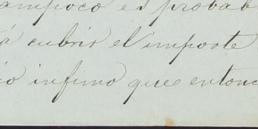 ampoco es probab
á cubrir el importe
io infimo que entonc